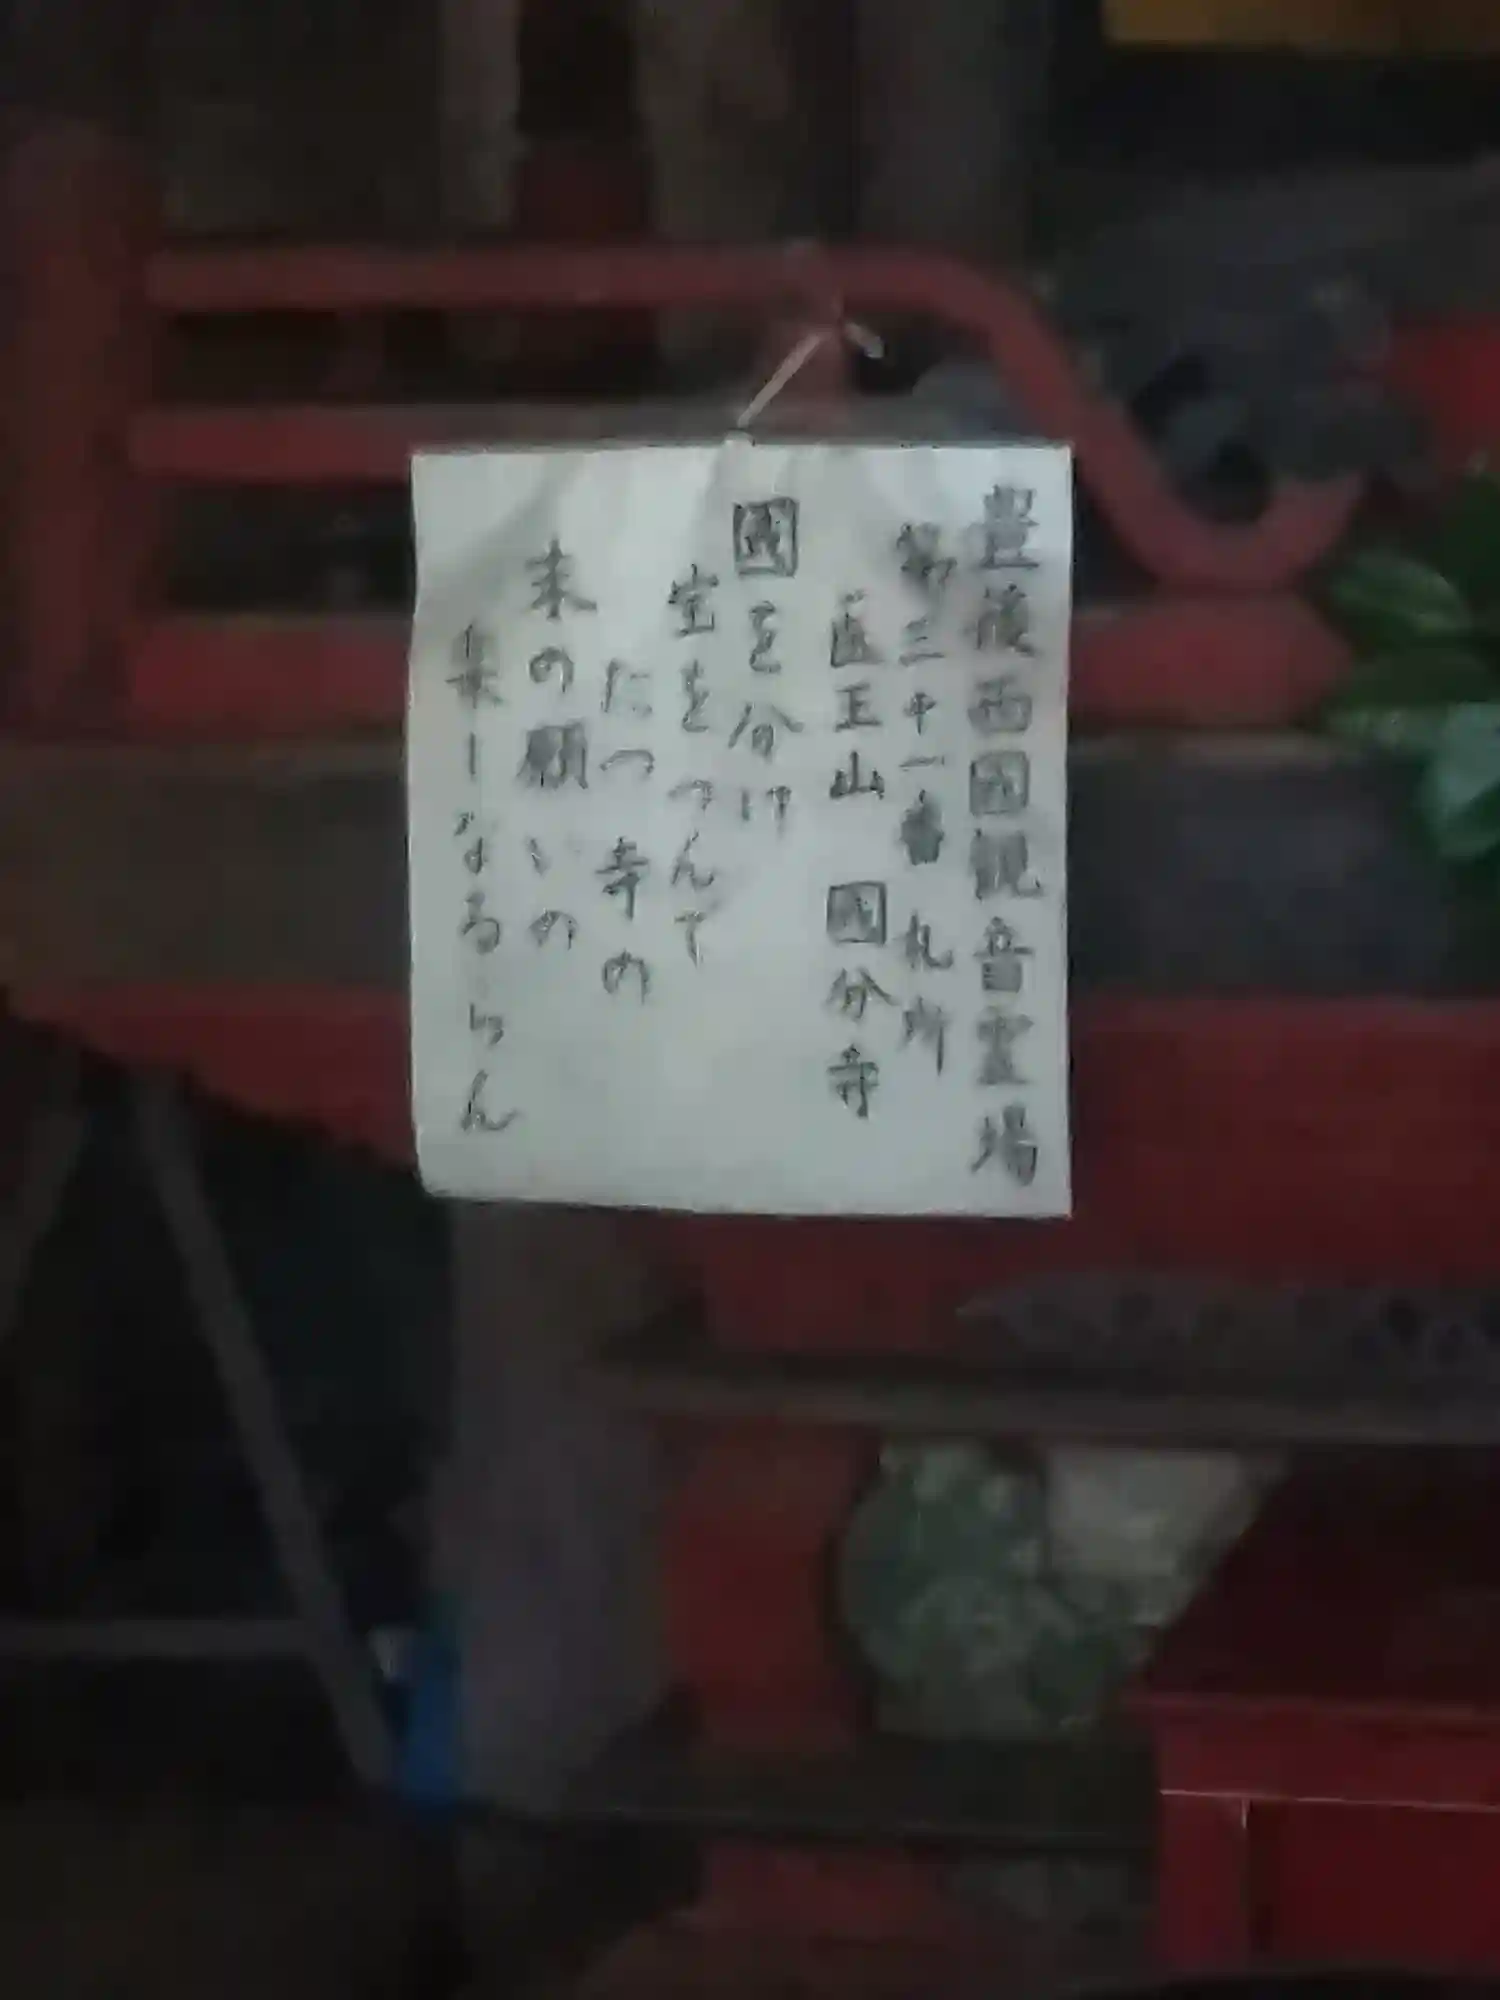 豊後西國観音霊場
第三十一番 札所
医王山 國分寺
國を分け
宝をつんで
たつ寺の
末の願いの
果しなるらん